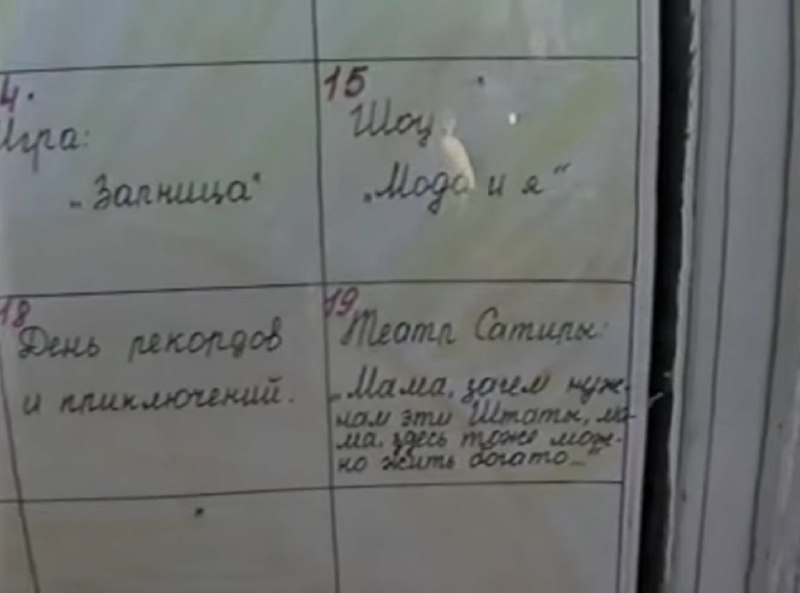 4.
Игра:
„Зарница"
15
Шоу
„Мода и я"
18
День рекордов
и приключений.
19
Театр Сатиры:
„Мама, зачем нуж-
нам эти Штаты, ма-
ма, здесь тоже мож-
но жить богато..."